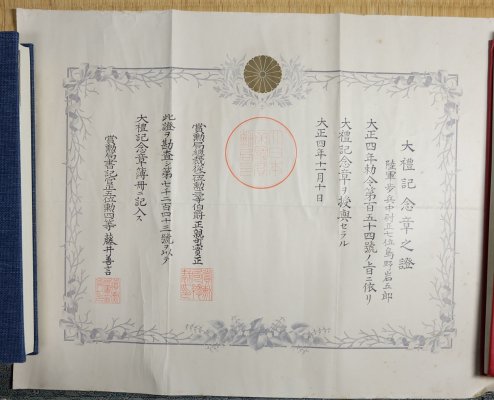 大禮記念章之證
陸軍歩兵中尉正七位島野岩五郎
大正四年勅令第百五十四號ノ旨ニ依リ
大禮記念章ヲ授與セラル
大正四年十一月十日
賞勲局總裁従二位勲一等伯爵正親町實正
此證ヲ勘査シ第七千二百四十三號ヲ以テ
大禮記念章簿冊ニ記入ス
賞勲局書記官正五位勲四等藤井善言